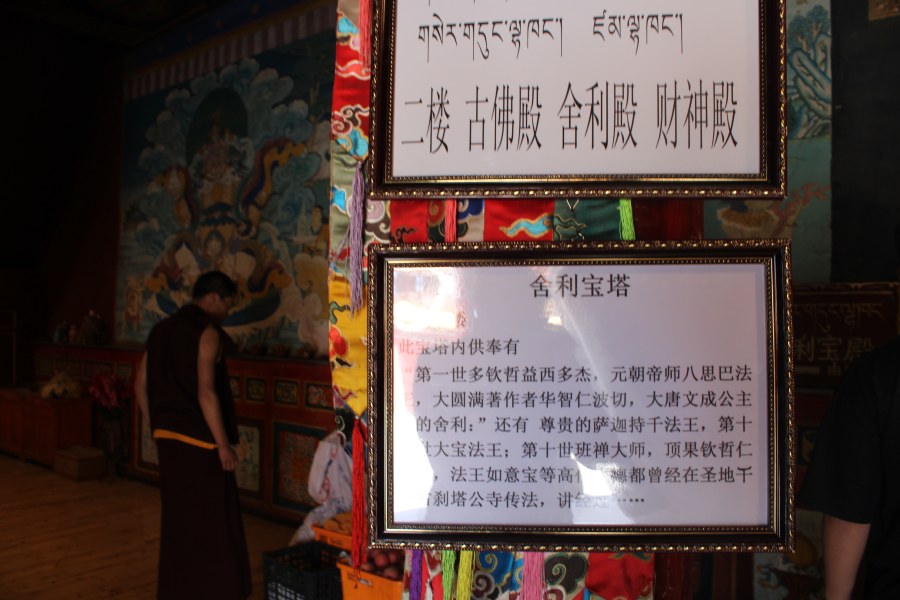 གསེར་གདུང་ལྷ་ཁང། ཛམ་ལྷ་ཁང།
二楼 古佛殿 舍利殿 财神殿
舍利宝塔
此宝塔内供奉有
“第一世多钦哲益西多杰，元朝帝师八思巴法
，大圆满著作者华智仁波切，大唐文成公主
的舍利：”还有 尊贵的萨迦持千法王，第十
大宝法王；第十世班禅大师，顶果钦哲仁
，法王如意宝等高僧 德都曾经在圣地千
古刹塔公寺传法，讲经 ……
利宝殿